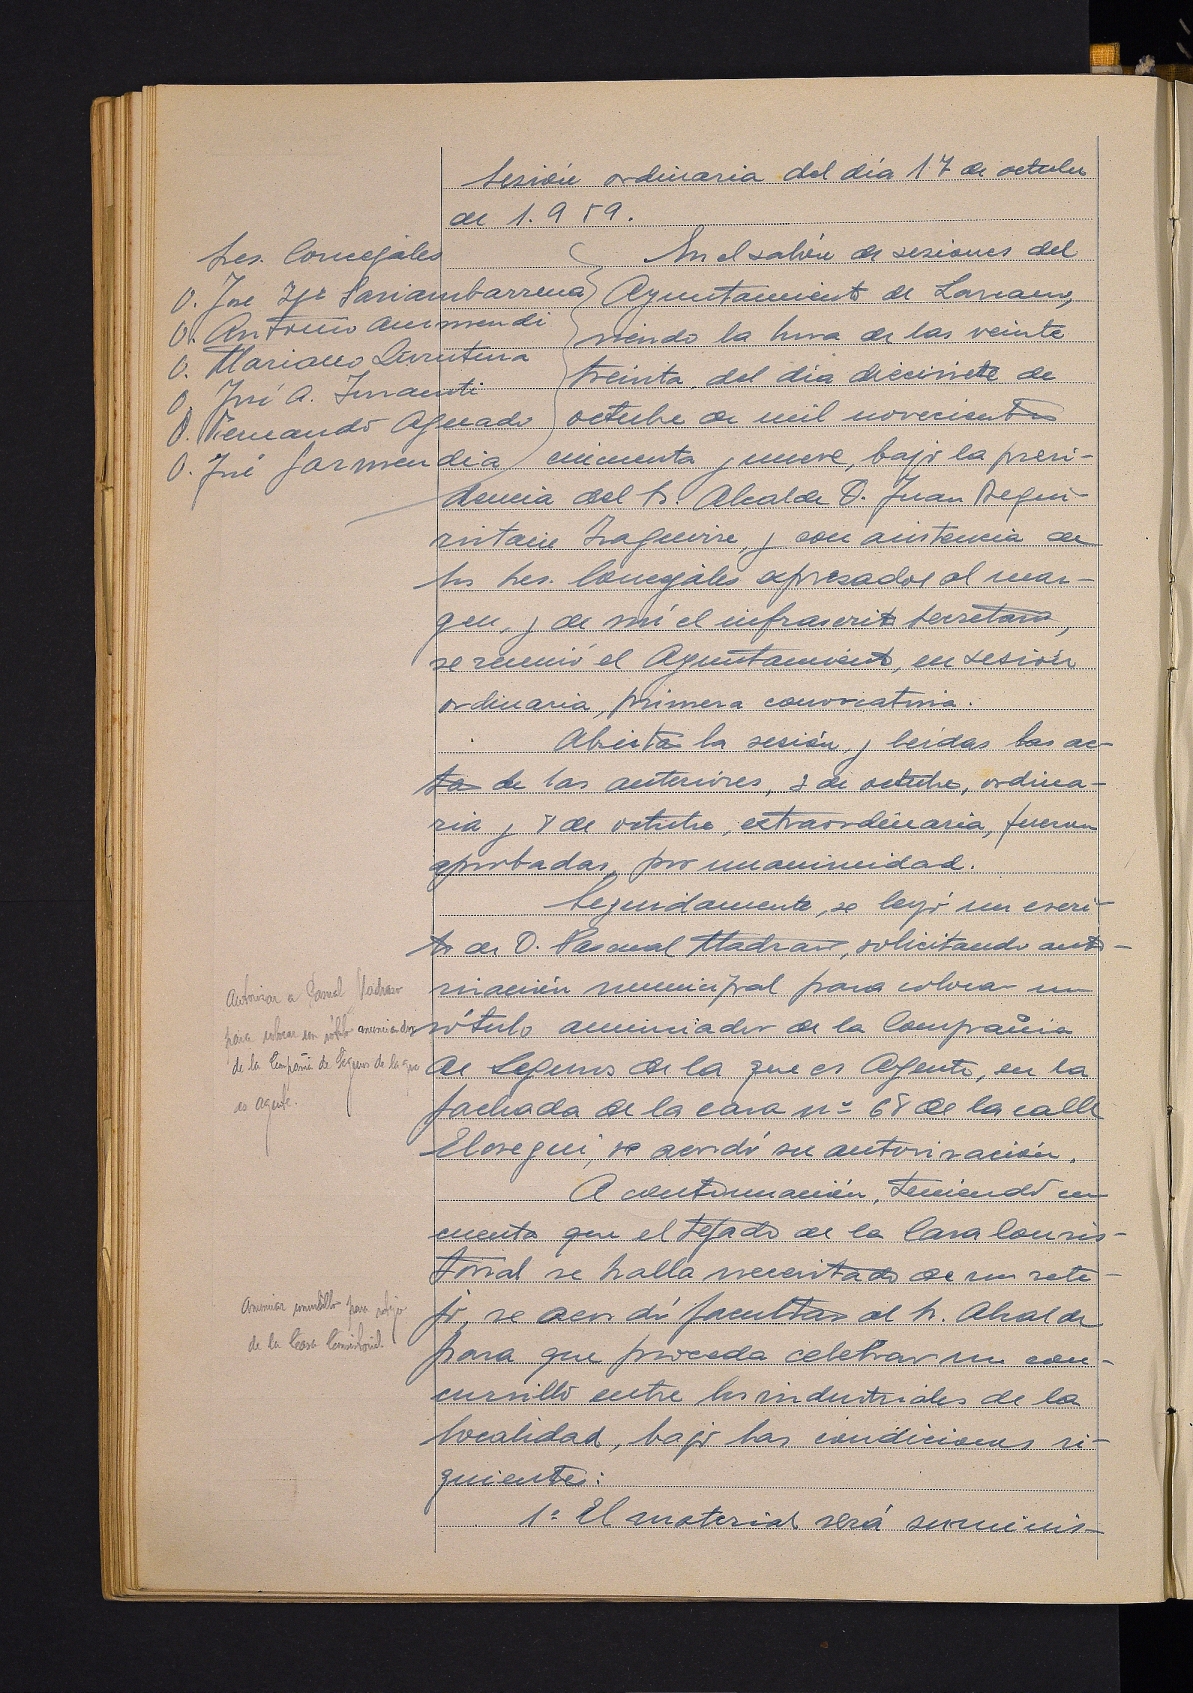 Sesión ordinaria del día 17 de octubre
de 1.959.
Sres. Concejales
D. José Igº Sariambarrena
D. Antonio Aurmendi
D. Mariano
D. José A.
D. Fernando Aguado
D. José Garmendia
En el salón de sesiones del
Ayuntamiento de Lasarte,
siendo la hora de las veinte
treinta, del día diecisiete de
octubre de mil novecientos
cincuenta y nueve, bajo la presi-
dencia del Sr. Alcalde D. Juan Begui-
ristain Izaguirre, y con asistencia de
los Sres. Concejales expresados al mar-
gen, y de mí el infrascrito Secretario,
se reunió el Ayuntamiento, en sesión
ordinaria, primera convocatoria.
Abierta la sesión, y leídas las ac-
tas de las anteriores, 3 de octubre, ordina-
ria y 8 de octubre, extraordinaria, fueron
aprobadas, por unanimidad.
Seguidamente, se leyó un escri-
to de D. Pascual Madrazo, solicitando auto-
rización municipal para colocar un
rótulo anunciador de la Compañía
de Seguros de la que es Agente, en la
fachada de la casa nº 68 de la calle
Elosegui, se acordó su autorización.
Autorizar a Pascual Madrazo
para colocar un rótulo anunciador
de la Compañía de Seguros de la que
es agente.
A continuación, teniendo en
cuenta que el tejado de la Casa Consis-
torial se halla necesitado de un rete-
jo, se acordó facultar al Sr. Alcalde
para que proceda celebrar un con-
cursillo entre los industriales de la
localidad, bajo las condiciones si-
guientes:
Anunciar concursillo para retejo
de la Casa Consistorial
1ª El material será suminis-